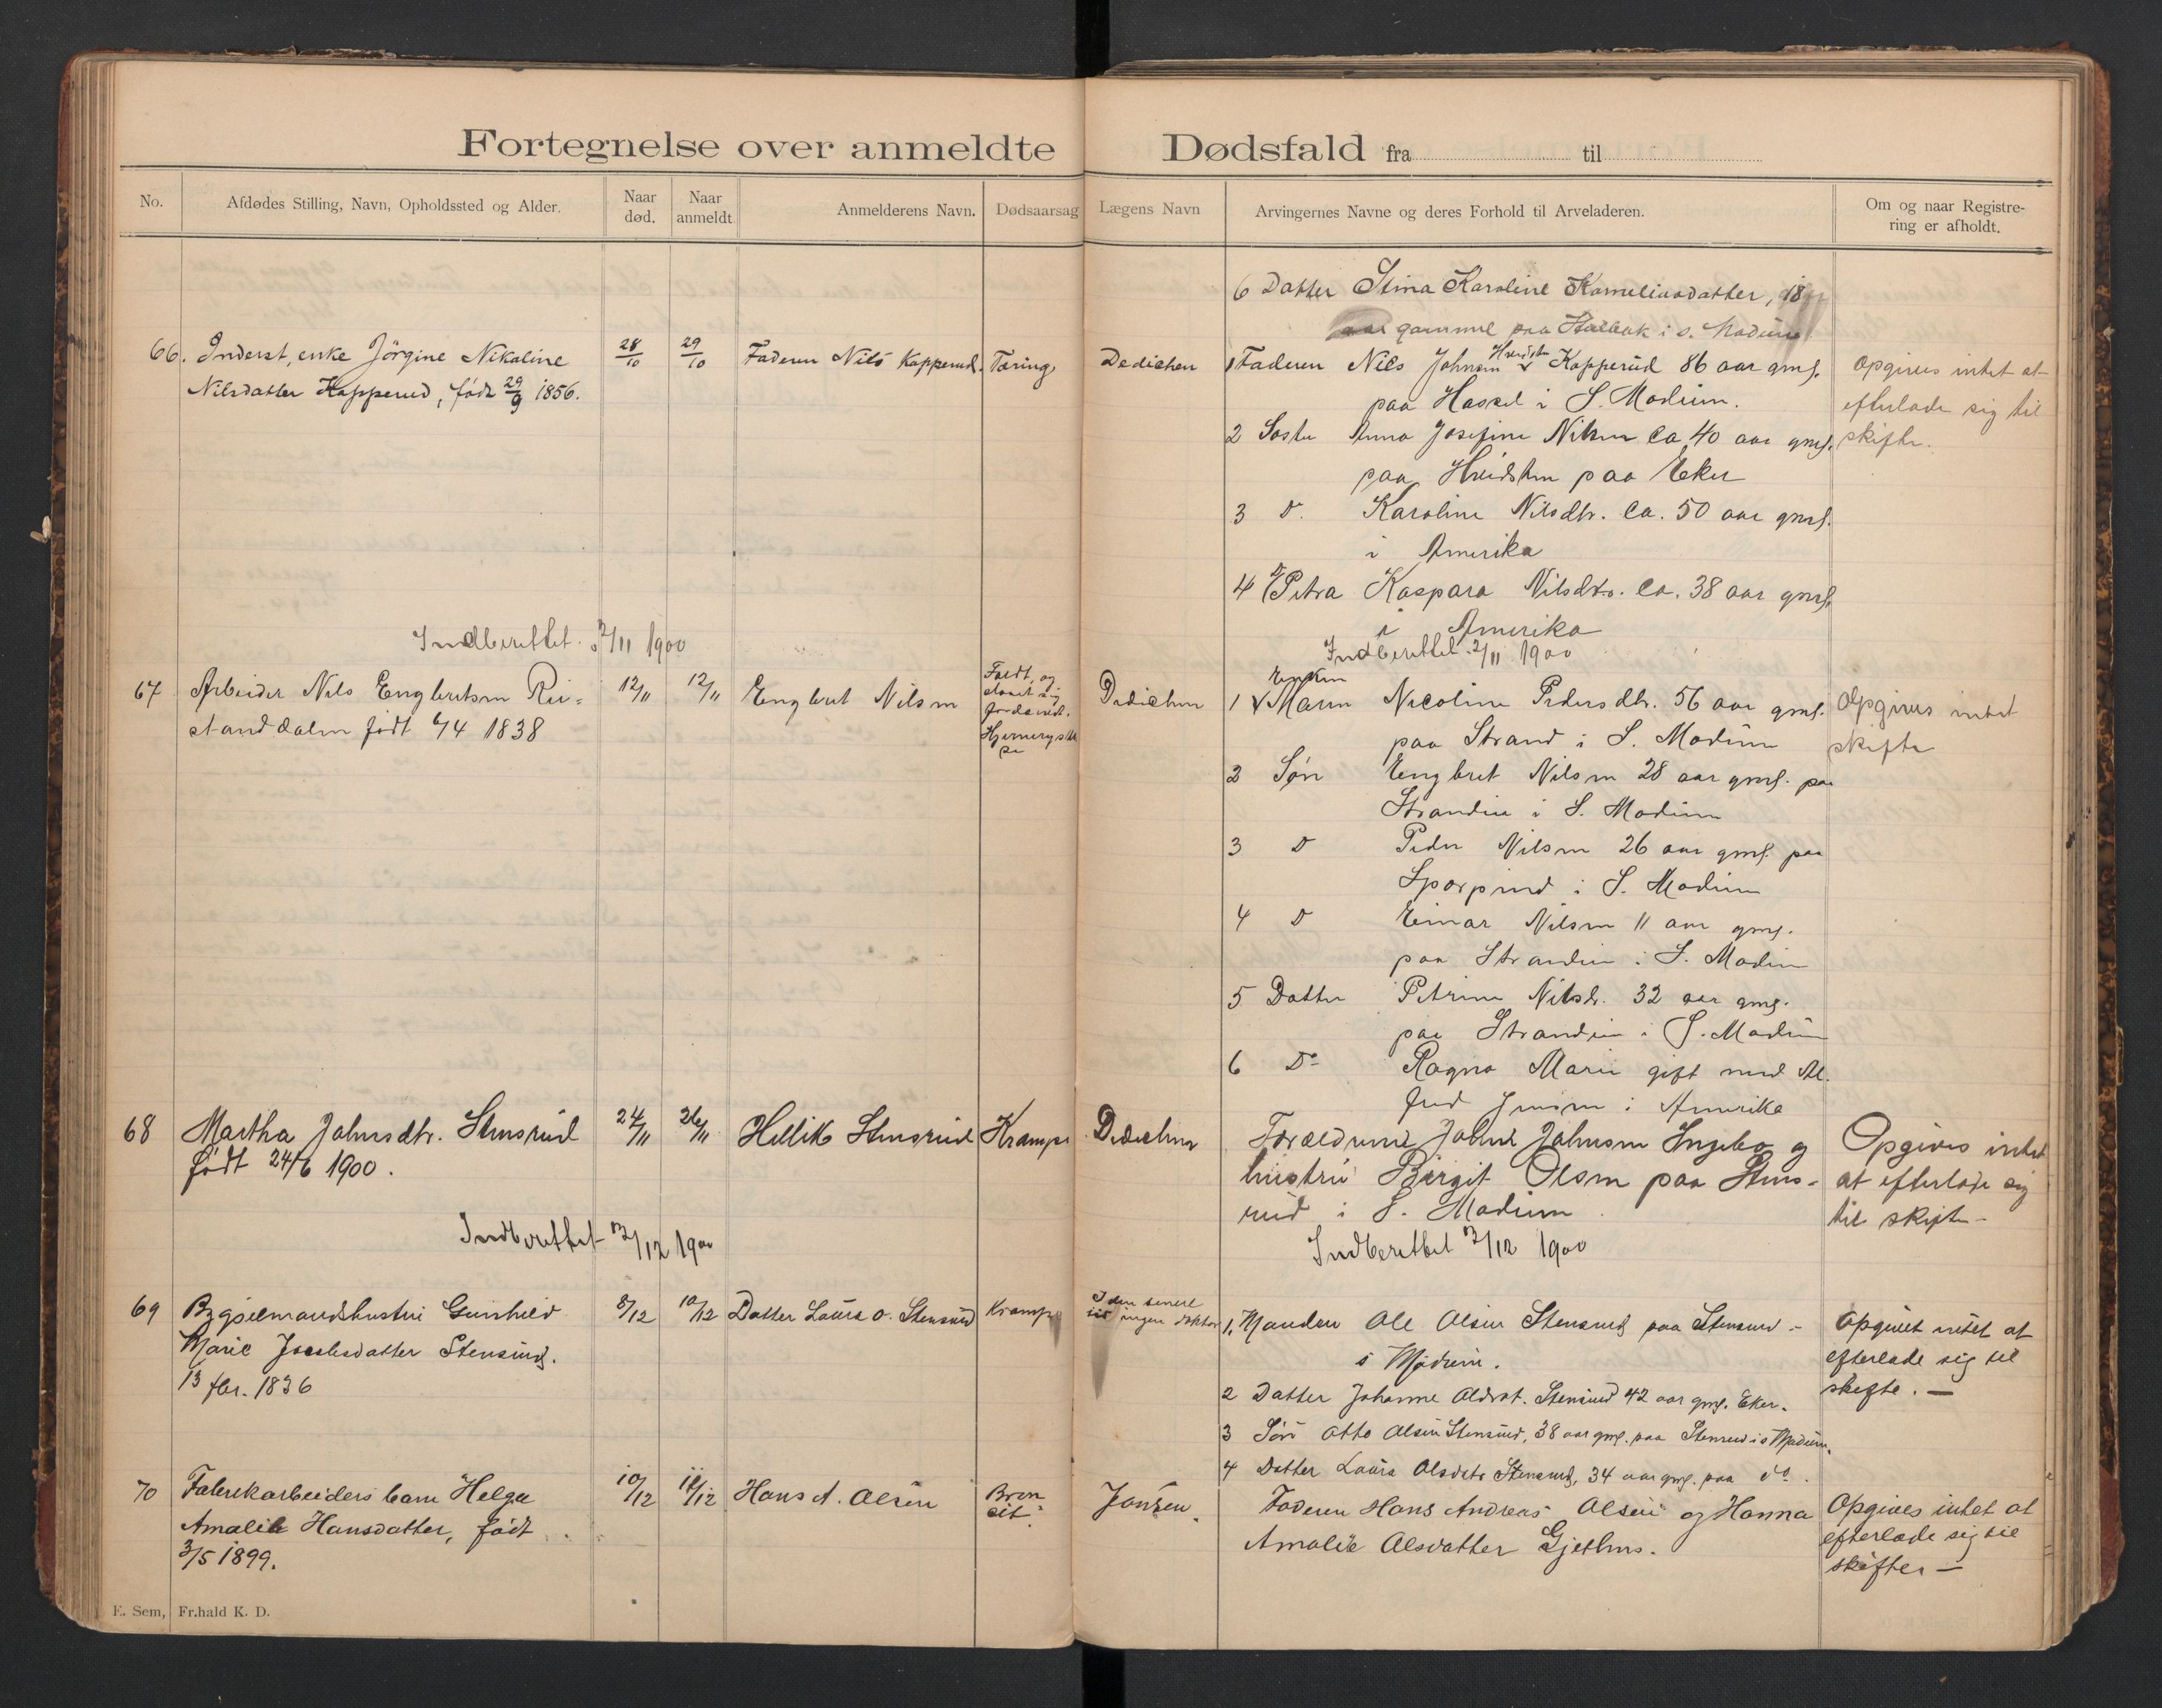 Fortegnelse over anmeldte Dødsfald fra til
No. Afdødes Stilling, Navn, Opholdssted og Alder. Naar død. Naar anmeldt. Anmelderens Navn. Dødsaarsag Lægens Navn Arvingernes Navne og deres Forhold til Arveladeren. Om og naar Registrering er afholdt.
6 Datter Stina Karoline Korneliusdatter, 18
aar gammel paa i S. Modum
66. Inderst, enke Jörgine Nikoline
Nilsdatter Kopperud, født 29/9 1856.
28/10
29/10
Faderen Nils Kopperud.
Tæring,
Dedichen
1 Faderen Nils Johnsen Kopperud 86 aar gml.
paa Hassel i S. Modum.
2 Søster Anna Josefine Nilsen ca 40 aar gml.
paa Hvidsten paa Eker
3 D. Karoline Nilsdtr. ca. 50 aar gml.
i Amerika
4 D Petra Kaspara Nilsdtr. ca. 38 aar gml.
i Amerika
Opgives intet at
efterlade sig til
skifte.
Indberettet 2/11 1900
Indberettet 2/11 1900
67 Arbeider Nils Engbretsen Ru-
standdalen født 6/4 1838
12/11
12/11
Engbret Nilsen
Faldt, og
stødt sig
fordærvet.
Hjernerystel
se
Dedichen
1 Enken Maren Nicoline Pedersdtr. 56 aar gml.
paa Strand i S. Modum
2 Søn Engbret Nilsen 28 aar gml. paa
Strandin i S. Modum
3 D Peder Nilsen 26 aar gml. paa
i S. Modum
4 D Einar Nilsen 11 aar gml.
paa Strandin i S. Modum
5 Datter Petrine Nilsdr. 32 aar gml.
paa Strandin i S. Modum
6 D Ragna Marie gift med Al-
fred Jensen i Amerika
Opgives intet
skifte
68 Martha Johnsdtr. Stensrud
født 24/6 1900.
24/11
26/11
Hellik Stensrud
Krampe
Dedichen
Forældrene Johne Johnsen Ingebo og
hustru Birgit Olsen paa Stens-
rud i S. Modum
Opgives intet
at efterlade sig
til skifte -
Indberettet 3/12 1900
Indberettet 3/12 1900
69 Bygselmandshustru Gunhild
Marie Jacobsdatter Stensrud.
13 fbr. 1836
8/12
10/12
Datter Laura O. Stensrud
Krampe
I den senere
tid ingen doktor
1, Manden Ole Olsen Stensrud paa Stensrud -
i Modum.
2 Datter Johanne Olsdat. Stensrud 42 aar gml. Eker.
3 Søn Otto Olsen Stensrud, 38 aar gml. paa Stensrud i S Modum.
4 Datter Laura Olsdatr Stensrud, 34 aar gml. paa do.
Opgivet intet at
efterlade sig til
skifte. —
70 Fabrikarbeiders barn Helga
Amalie Hansdatter, født
3/5 1899.
10/12
11/12
Hans A. Olsen
Bron
cit.
Jansen.
Faderen Hans Andreas Olsen og Hanna
Amalie Olsdatter Gjethus.
Opgives intet at
efterlade sig til
skifter —
E. Sem, Fr.hald K. D.